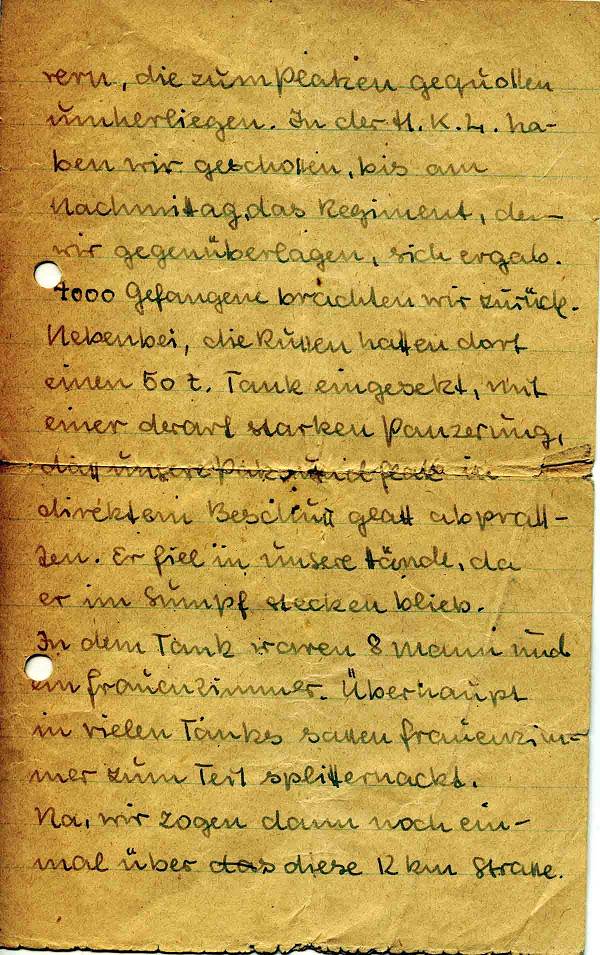 rern, die zum Plazen gequollen
umherliegen. In der H. K. L. ha-
ben wir geschossen, bis am
Nachmittag, das Regiment, dem
wir gegenüberlagen, sich ergab.
4000 Gefangene brachten wir zurück.
Nebenbei, die Russen hatten dort
einen 50 t. Tank eingesetzt, mit
einer derart starken Panzerung,
daß unsere Pak und Flak in
direktem Beschuß glatt abprall-
ten. Er fiel in unsere Hände, da
er im Sumpf stecken blieb.
In dem Tank waren 8 Mann und
ein Frauenzimmer. Überhaupt
in vielen Tanks saßen Frauenzim-
mer zum Teil splitternackt.
Na, wir zogen dann noch ein-
mal über das diese 12 km Straße.